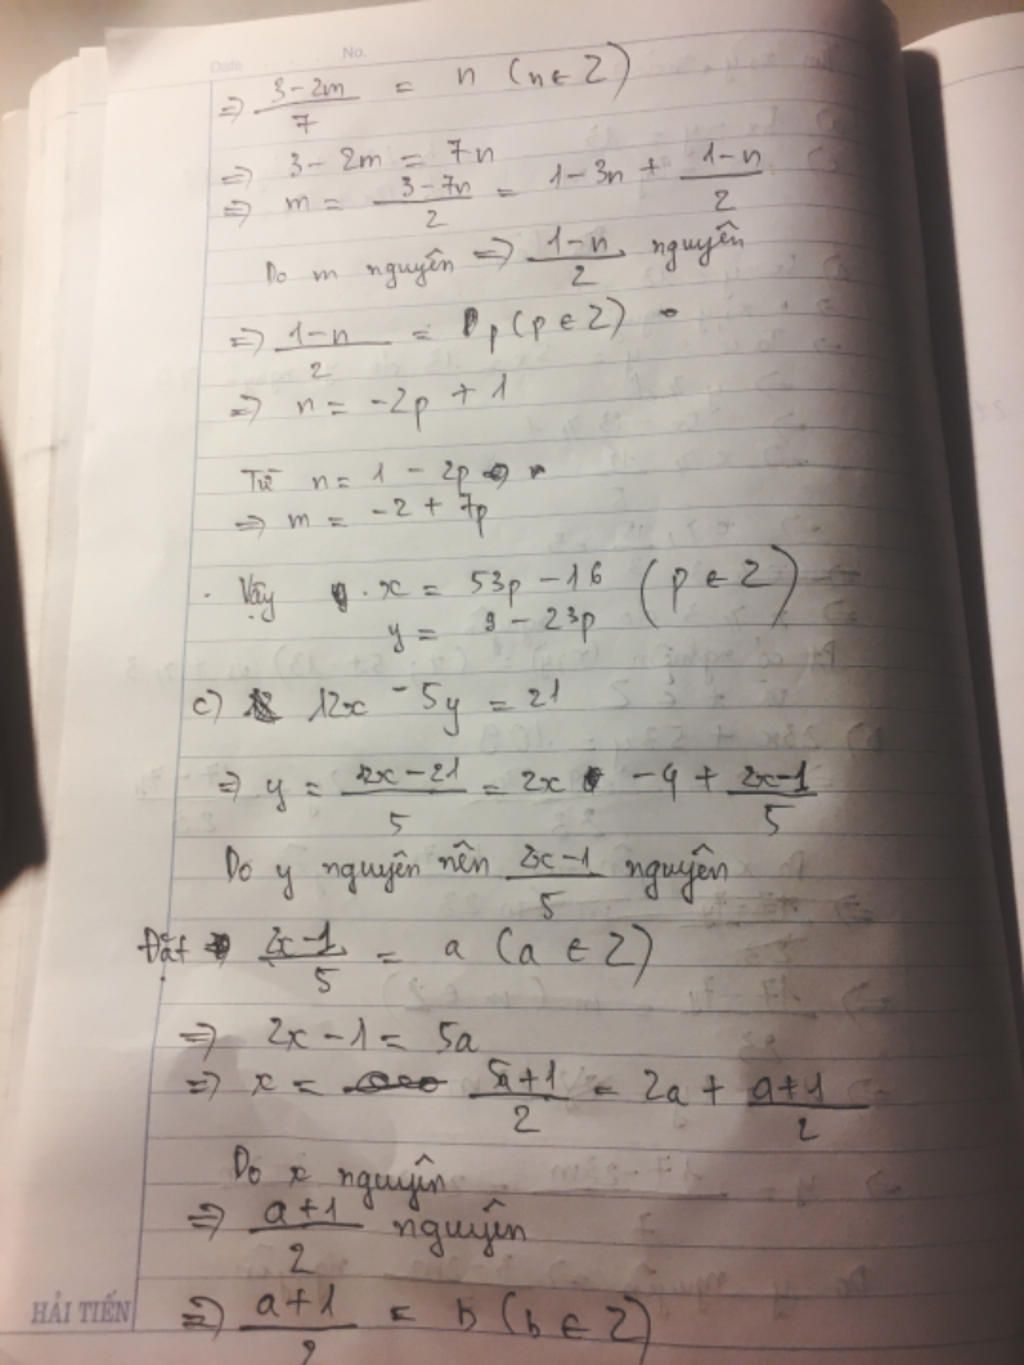 Date No.
=> (3-2m)/7 = n (n ∈ Z)
=> 3 - 2m = 7n
=> m = (3-7n)/2 = 1-3n + (1-n)/2
Do m nguyên => (1-n)/2 nguyên
=> (1-n)/2 = p (p ∈ Z)
=> n = -2p + 1
Từ n = 1 - 2p
=> m = -2 + 7p
Vậy x = 53p - 16 (p ∈ Z)
y = 9 - 23p
c) 12x - 5y = 21
=> y = (12x-21)/5 = 2x - 4 + (2x-1)/5
Do y nguyên nên (2x-1)/5 nguyên
Đặt (2x-1)/5 = a (a ∈ Z)
=> 2x - 1 = 5a
=> x = (5a+1)/2 = 2a + (a+1)/2
Do x nguyên
=> (a+1)/2 nguyên
=> (a+1)/2 = b (b ∈ Z)
HẢI TIẾN